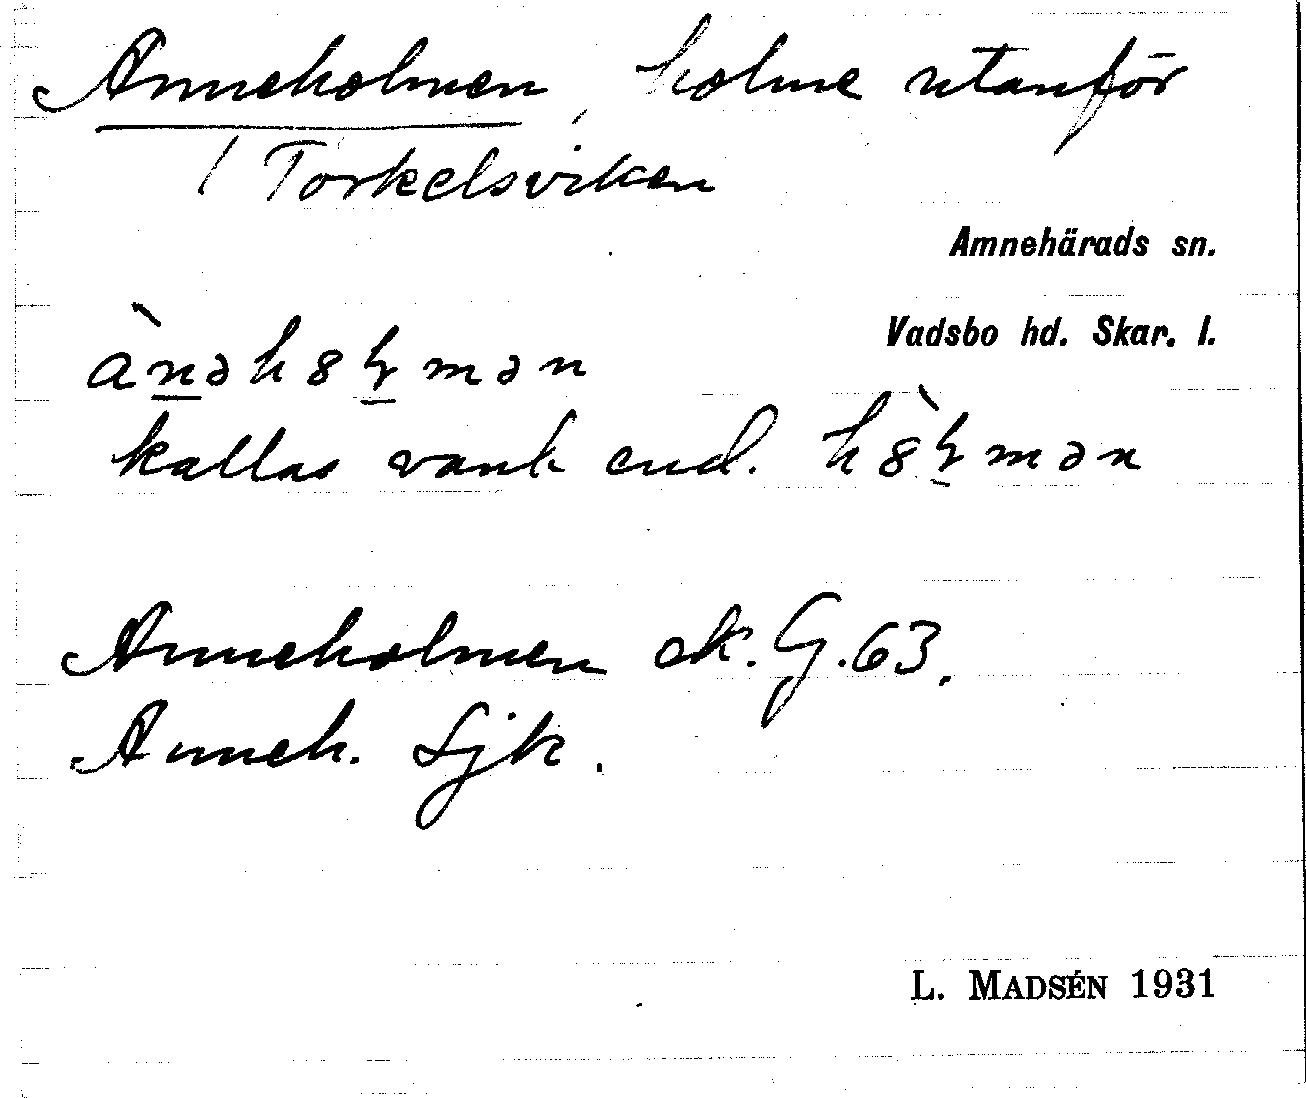 Anneholmen, holme utanför
/ Torkelsviken
Amnehärads sn.
Vadsbo hd. Skar. l.
ànəh8ɽmən
kallas vanl. end. h8̀ɽmən
Anneholmen ek. G. 63.
Anneh. Sjk.
L. MADSÉN 1931